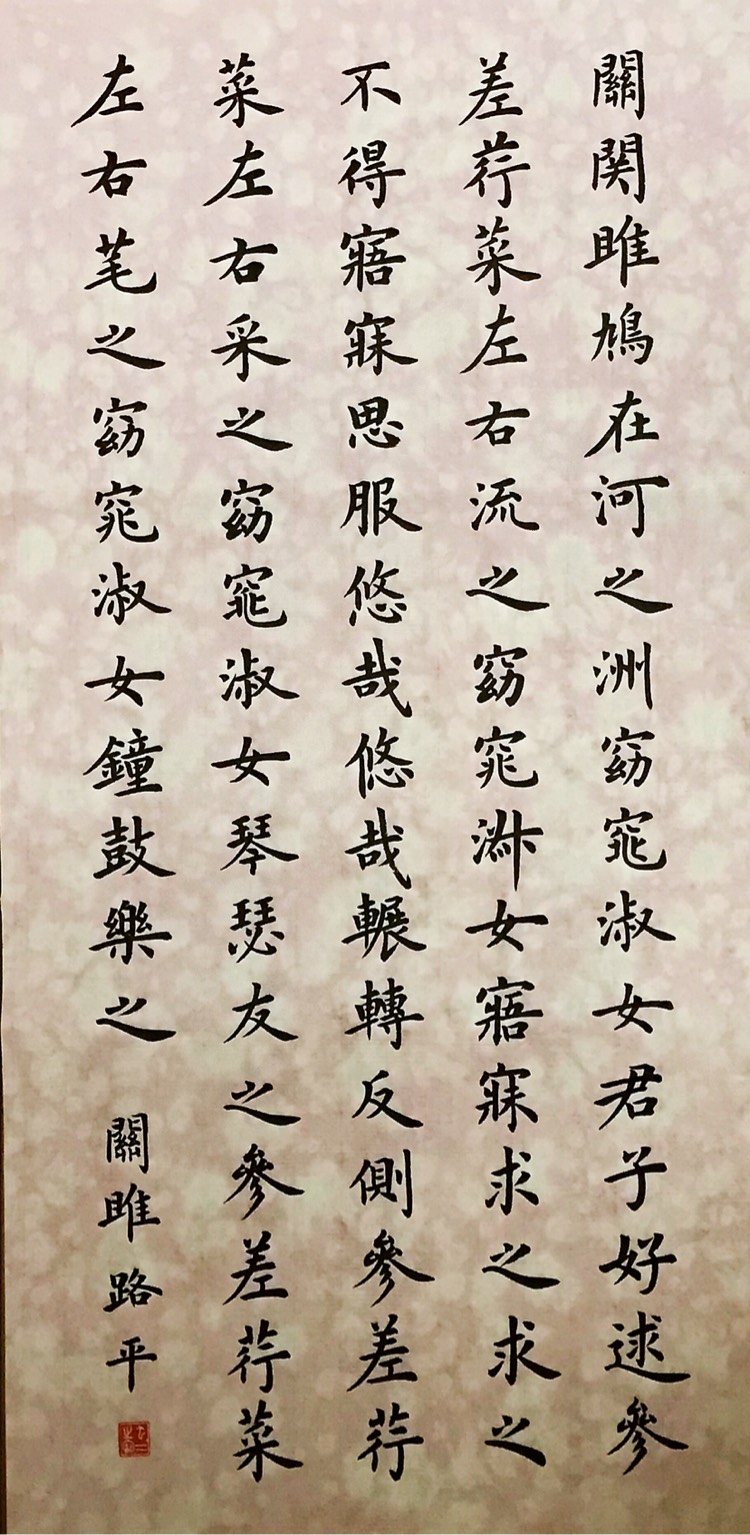 關関雎鳩在河之洲窈窕淑女君子好逑參
差荇菜左右流之窈窕淑女寤寐求之求之
不得寤寐思服悠哉悠哉輾轉反側參差荇
菜左右采之窈窕淑女琴瑟友之參差荇菜
左右芼之窈窕淑女鐘鼓樂之 關雎路平